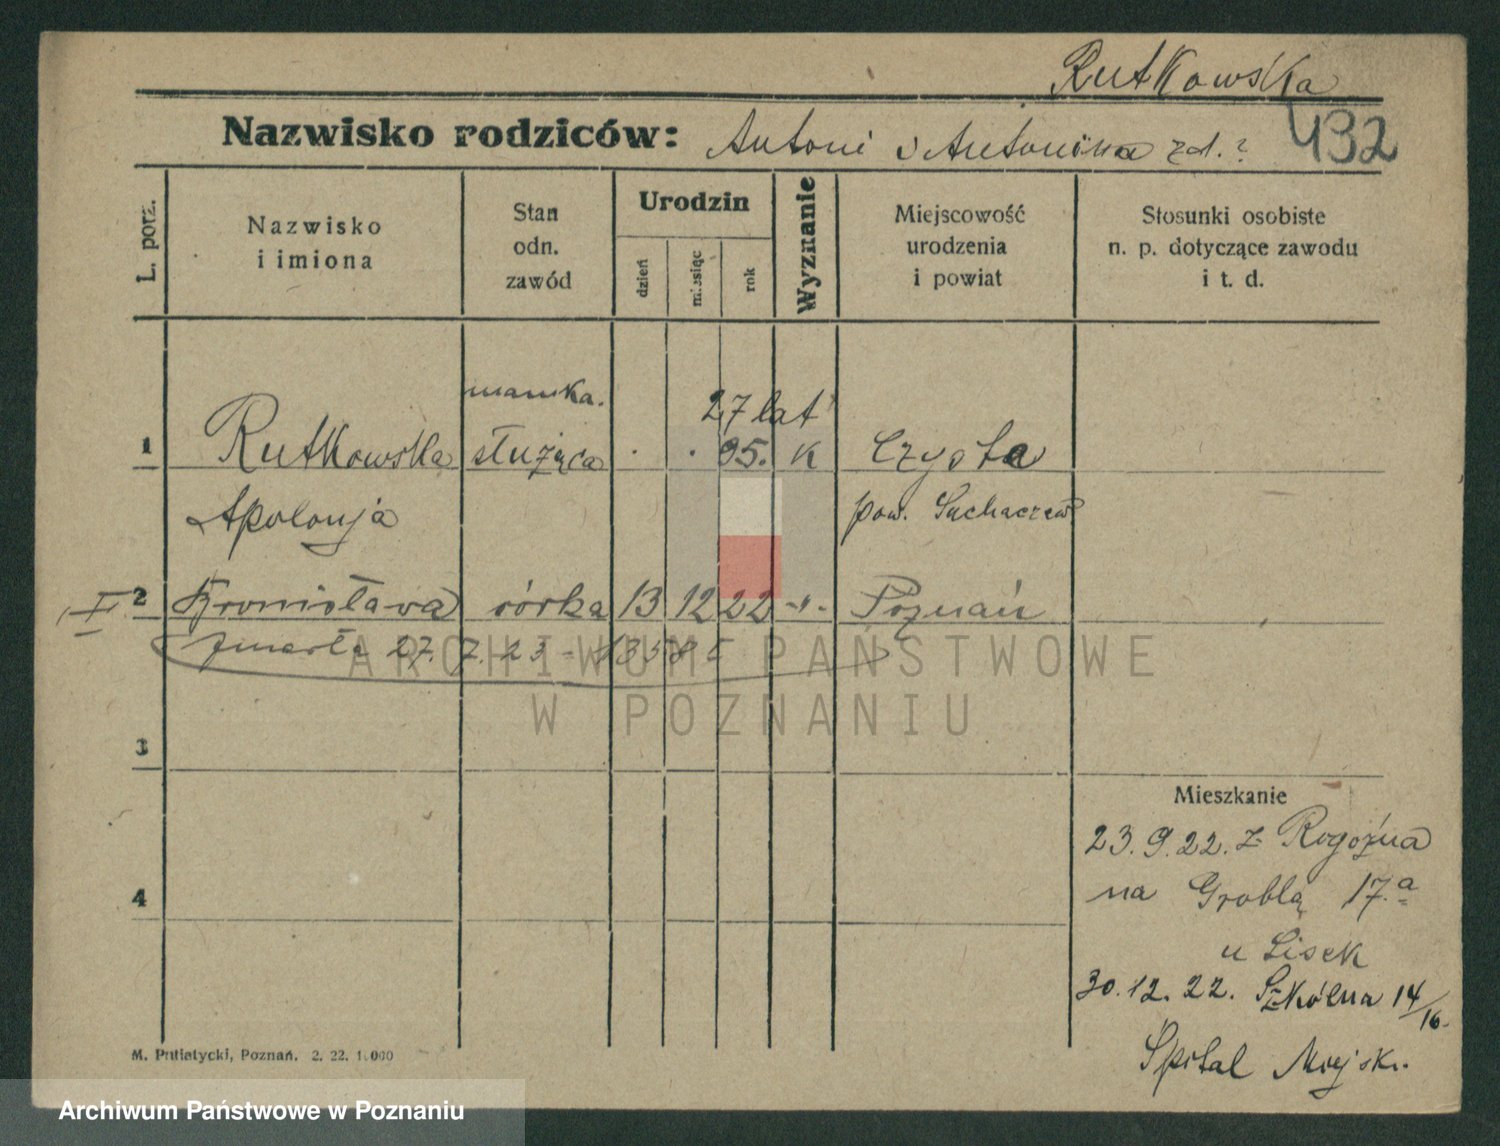 Rutkowska
Nazwisko rodziców: Antoni i Antonina zd. ?
432
L. porz.
Nazwisko i imiona
Stan odn. zawód
Urodzin
dzień
miesiąc
rok
Wyznanie
Miejscowość urodzenia i powiat
Stosunki osobiste n. p. dotyczące zawodu i t. d.
mamka.
27 lat
1 Rutkowska służąca . . 95. K Czysta
Apolonja pow. Sochaczew
I 2 Bronisława córka 13 12 22 -"- Poznań
zmarła 27. 7. 23 -
ARCHIWUM PAŃSTWOWE
W POZNANIU
3
Mieszkanie
23. 9. 22. z Rogoźna
4
na Groblą 17.a
u Lisek
30. 12. 22. Szkólna 14/16.
Szpital Miejski.
M. Putiatycki, Poznań. 2. 22. 1.000
Archiwum Państwowe w Poznaniu